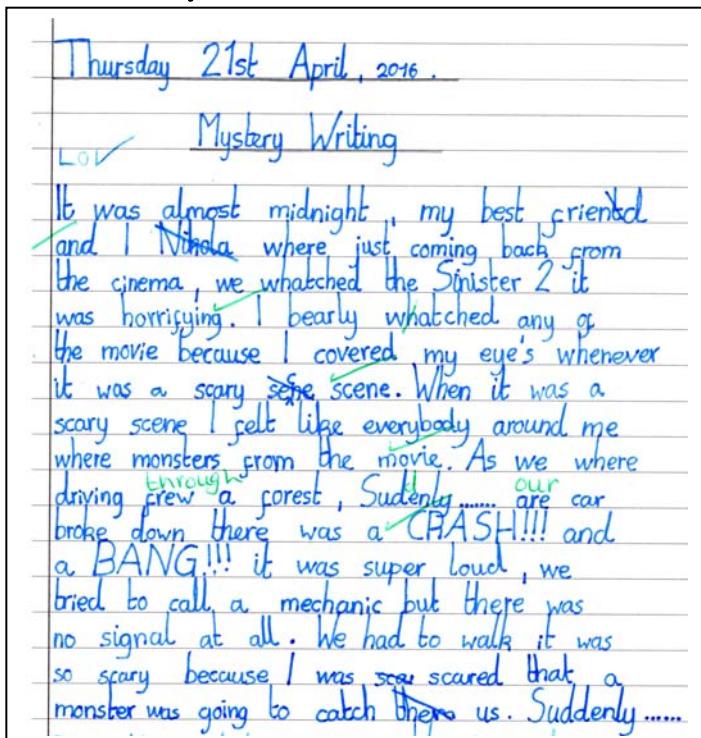 Thursday 21st April, 2016.
Mystery Writing
LO✓
It was almost midnight, my best friend
and I Nikola where just coming back from
the cinema, we whatched the Sinister 2 it
was horrifying. I bearly whatched any of
the movie because I covered my eye's whenever
it was a scary scene. When it was a
scary scene I felt like everybody around me
where monsters from the movie. As we where
through d our
driving frew a forest, Sudenly....... are car
broke down there was a CRASH!!! and
a BANG!!! it was super loud, we
tried to call a mechanic but there was
no signal at all. We had to walk it was
so scary because I was scar scared that a
monster was going to catch us. Suddenly......